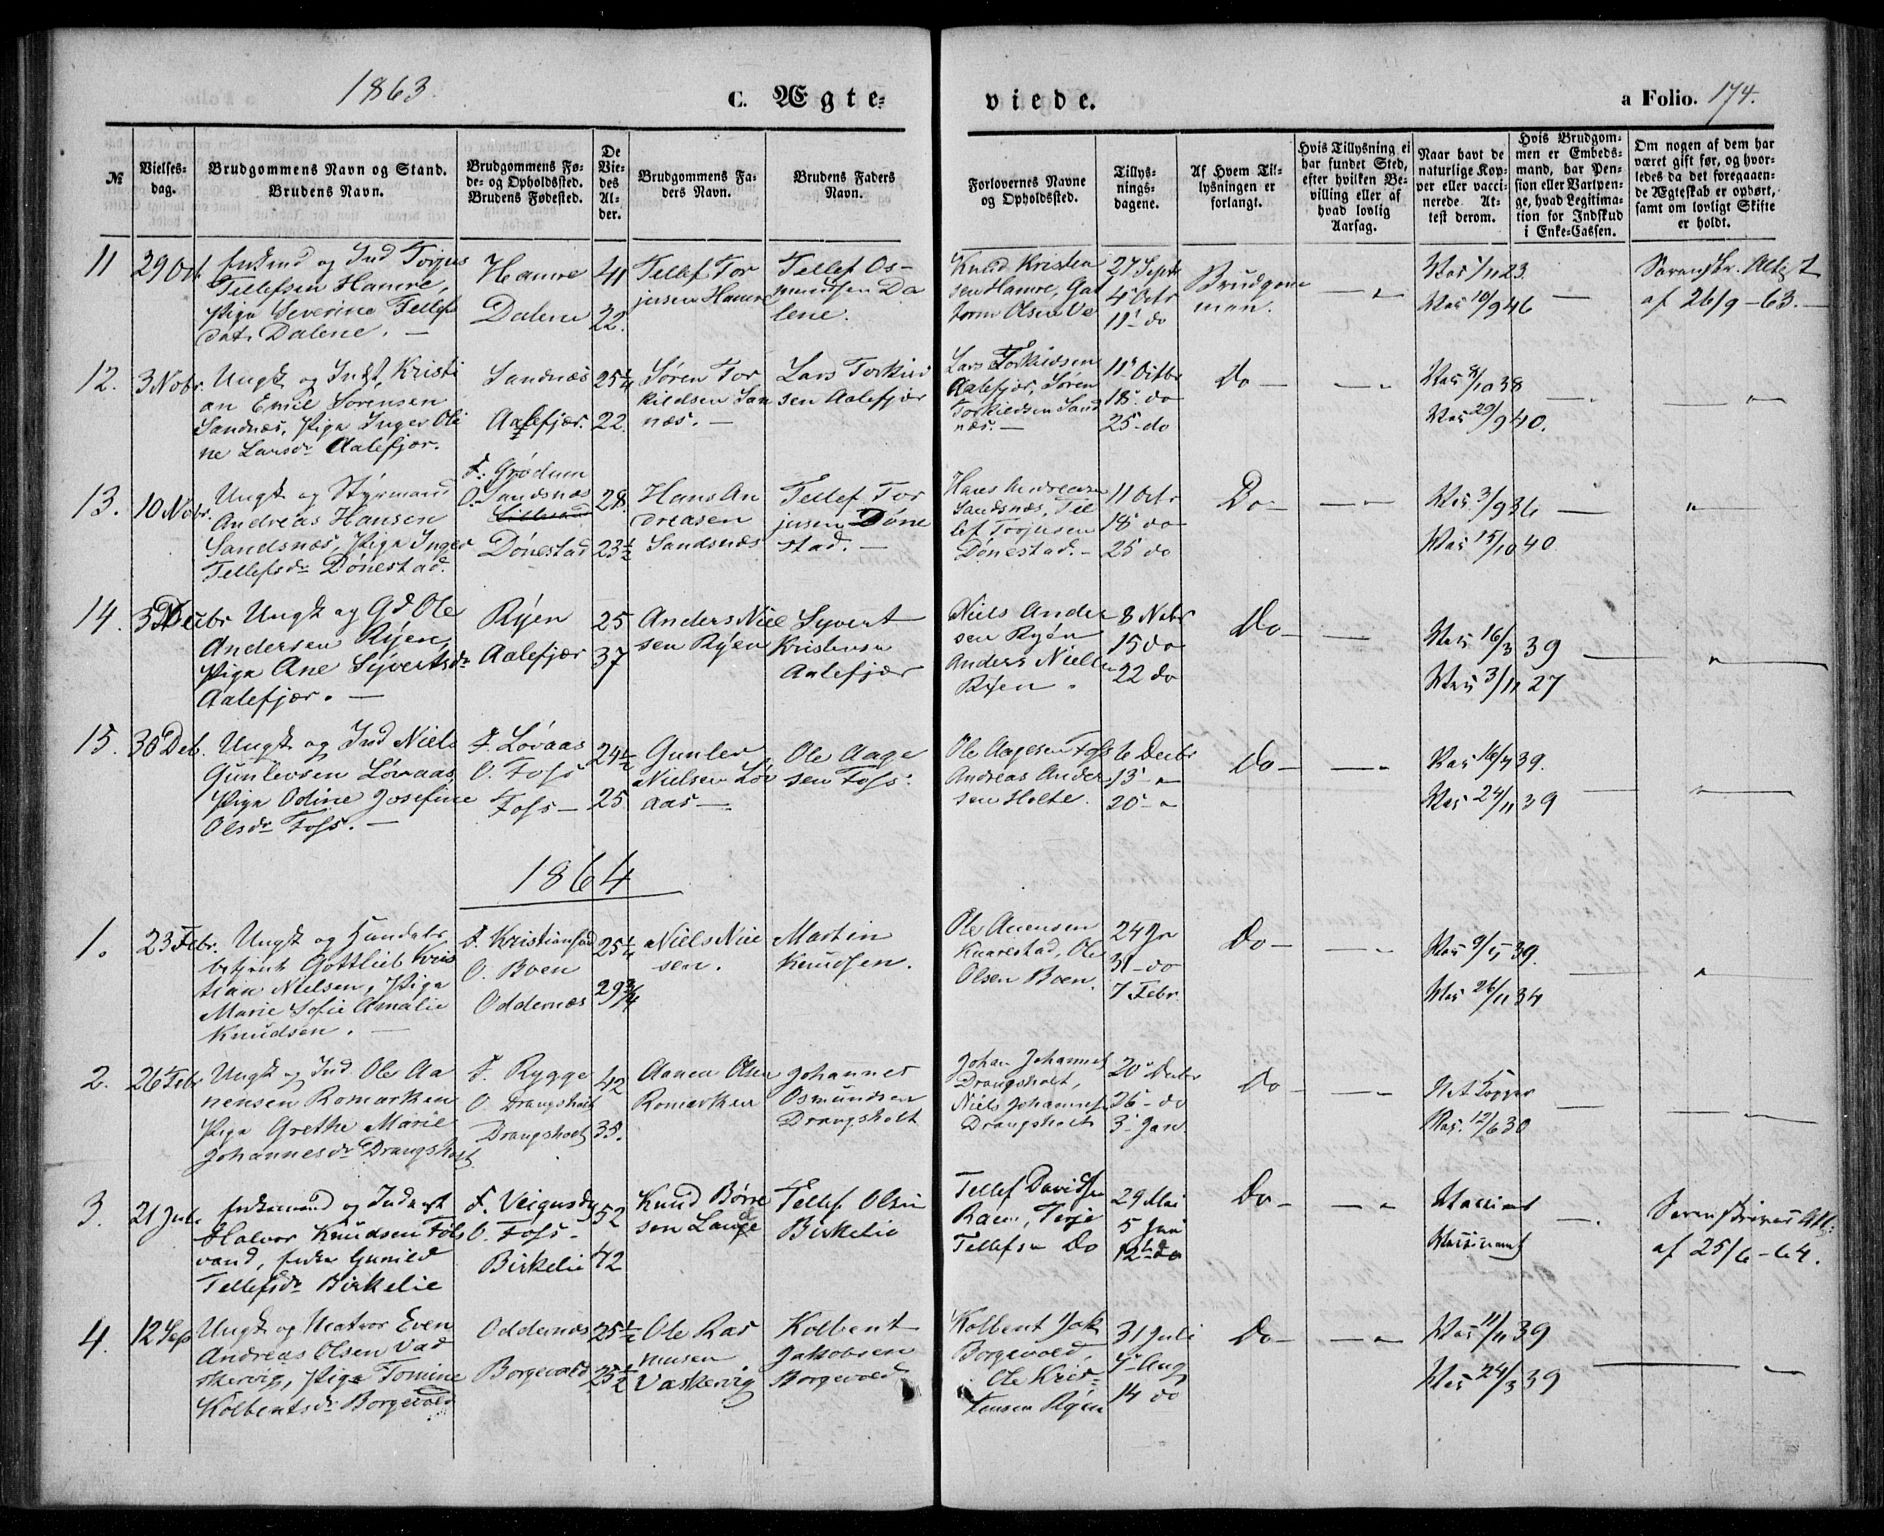 1863.
C. Ægte-
viede.
a Folio. 174.
№
Vielses-
dag.
Brudgommens Navn og Stand.
Brudens Navn.
Brudgommens Fø-
de- og Opholdssted.
Brudens Fødested.
De
Vie-
des
Al-
der.
Brudgommens Fa-
ders Navn.
Brudens Faders
Navn.
Forlovernes Navne
og Opholdssted.
Tillys-
nings-
dagene.
Af Hvem Til-
lysningen er
forlangt.
Hvis Tillysning ei
har fundet Sted,
efter hvilken Be-
villing eller af
hvad lovlig
Aarsag.
Naar havt de
naturlige Kop-
per eller vacci-
nerede. At-
test derom.
Hvis Brudgom-
men er Embeds-
mand, har Pen-
sion eller Vartpen-
ge, hvad Legitima-
tion for Indskud
i Enke-Cassen.
Om nogen af dem har
været gift før, og hvor-
ledes da det foregaaen-
de Ægteskab er ophørt,
samt om lovligt Skifte
er holdt.
11
29 Oct.
Enkmd og Ind Torjus
Tellefsen Hamre,
Pige Severine Tellefs
datr Dalene. —
Hamre
Dalene
41
22.
Tellef Tor
jusen Hamre
Tellef Os-
mundsen Da
lene.
Knud Kristen
sen Hamre, Gut
torm Olsen Ve
27 Septr
4 Octr
11 do
Brudgom
men.
Vac 1/11 23
Vac 10/9 46
Sorenskr. Attest
af 26/9 - 63. —
12.
3 Nobr
Ungk og Indst, Kristi
an Emil Sørensen
Sandnæs, Pige Inger Oli
ne Larsdr Aalefjær.
Sandnæs
Aalefjær.
25 1/4
22.
Søren Tor
kildsen San
næs. —
Lars Torkild
sen Aalefjær
Lars Torkildsen
Aalefjær, Søren
Torkildsen Sand
næs. —
11 Octbr
18 do
25 do
Do —
Vac 8/10 38
Vac 29/9 40.
13.
10 Nobr.
Ungk og Styrmand
Andreas Hansen
Sandsnæs, Pige Inger
Tellefsdr Dönestad.
F. Grödum
O. Sandsnæs
Dönestad
28.
23 1/2
Hans An
dreasen
Sandsnæs
Tellef Tor
jusen Döne
stad. —
Hans Andreasen
Sandsnæs, Tel
lef Torjusen
Dönestad. —
11 Octr
18 do
25 do
Do —
Vac 3/9 36
Vac 15/10 40.
14.
5 Decbr
Ungk og Gd Ole
Andersen Ryen,
Pige Ane Syvertsdr
Aalefjær. —
Ryen
Aalefjær
25
37
Anders Niel
sen Ryen
Syvert
Kristensen
Aalefjær
Niels Ander
sen Ryen
Anders Nielsen
Ryen.
8 Nobr
15 do
22 do
Do —
Vac 16/3 39
Vac 3/11 27
15.
30 Deb.
Ungk og Ind Niels
Gunlevsen Lövaas
Pige Odine Josefine
Olsdr Fofs. —
F. Lövaas
O. Fofs
Fofs —
24 1/2
25
Gunlev
Nielsen Löv
aas —
Ole Aage
sen Fofs.
Ole Aagesen Fofs
Andreas Ander
sen Holte.
6 Decbr
13 - "
20 - "
Do —
Vac 16/7 39.
Vac 24/11 39
1864
1.
23 Febr.
Ungk og Handels
betjent Gottlieb Kris
tian Nielsen, Pige
Marie Sofie Amalie
Knudsen. —
F. Kristiansad
O. Boen
Oddernæs
25 1/4
29 3/4
Niels Niel
sen.
Martin
Knudsen.
Ole Aanensen
Knarestad, Ole
Olsen Boen.
24 Jan
31 do
7 Febr.
Do —
Vac 9/5 39.
Vac 26/11 34
2.
26 Febr
Ungk og Ind Ole Aa
nensen Romarken
Pige Grethe Marie
Johannesdr Drangsholt
F. Rygge
O. Drangsholt
Drangsholt
42
35.
Aanen Olsen
Romarken
Johannes
Osmundsen
Drangsholt
Johan Johannes
Drangsholt,
Niels Johannesen
Drangsholt
20 Decbr
26 - do
3 Jan
Do —
Nat Kopper
Vac. 12/6 30
3.
21 Juli
Enkemand og Inderst
Halvor Knudsen Fols
vand, Enke Gunild
Tellefsdr Birkelie
F. Veigusdy
O. Fofs -
Birkelie
52
72
Knud Börre
sen
Tellef Olsen
Birkelie
Tellef Davidsen
Raen, Terje
Tellefsen Do
29 Mai
5 Juni
12 do
Do —
Vaccinert
Vaccineret
Sorenskrivers Att:
af 25/6 - 64.
4.
12 Sep
Ungk og Matros Even
Andreas Olsen Vad
skervig, Pige Tomine
Kolbentsdr Borgevold
Oddernæs
Borgevold
25 1/2
25 1/2
Ole Ras
musen
Vaskervig
Kolbent
Jakobsen
Borgevold
Kolbent Jak
Borgevold,
Ole Kris-
tensen Ryen
31 Juli
7 Aug
14 do
Do —
Vac 11/11 39
Vac 24/3 39